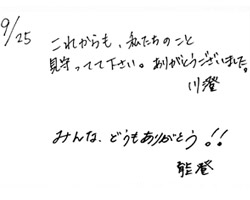 9/25
これからも、私たちのこと
見守ってて下さい。ありがとうございました。
川澄
みんな、どうもありがとう!!
能登